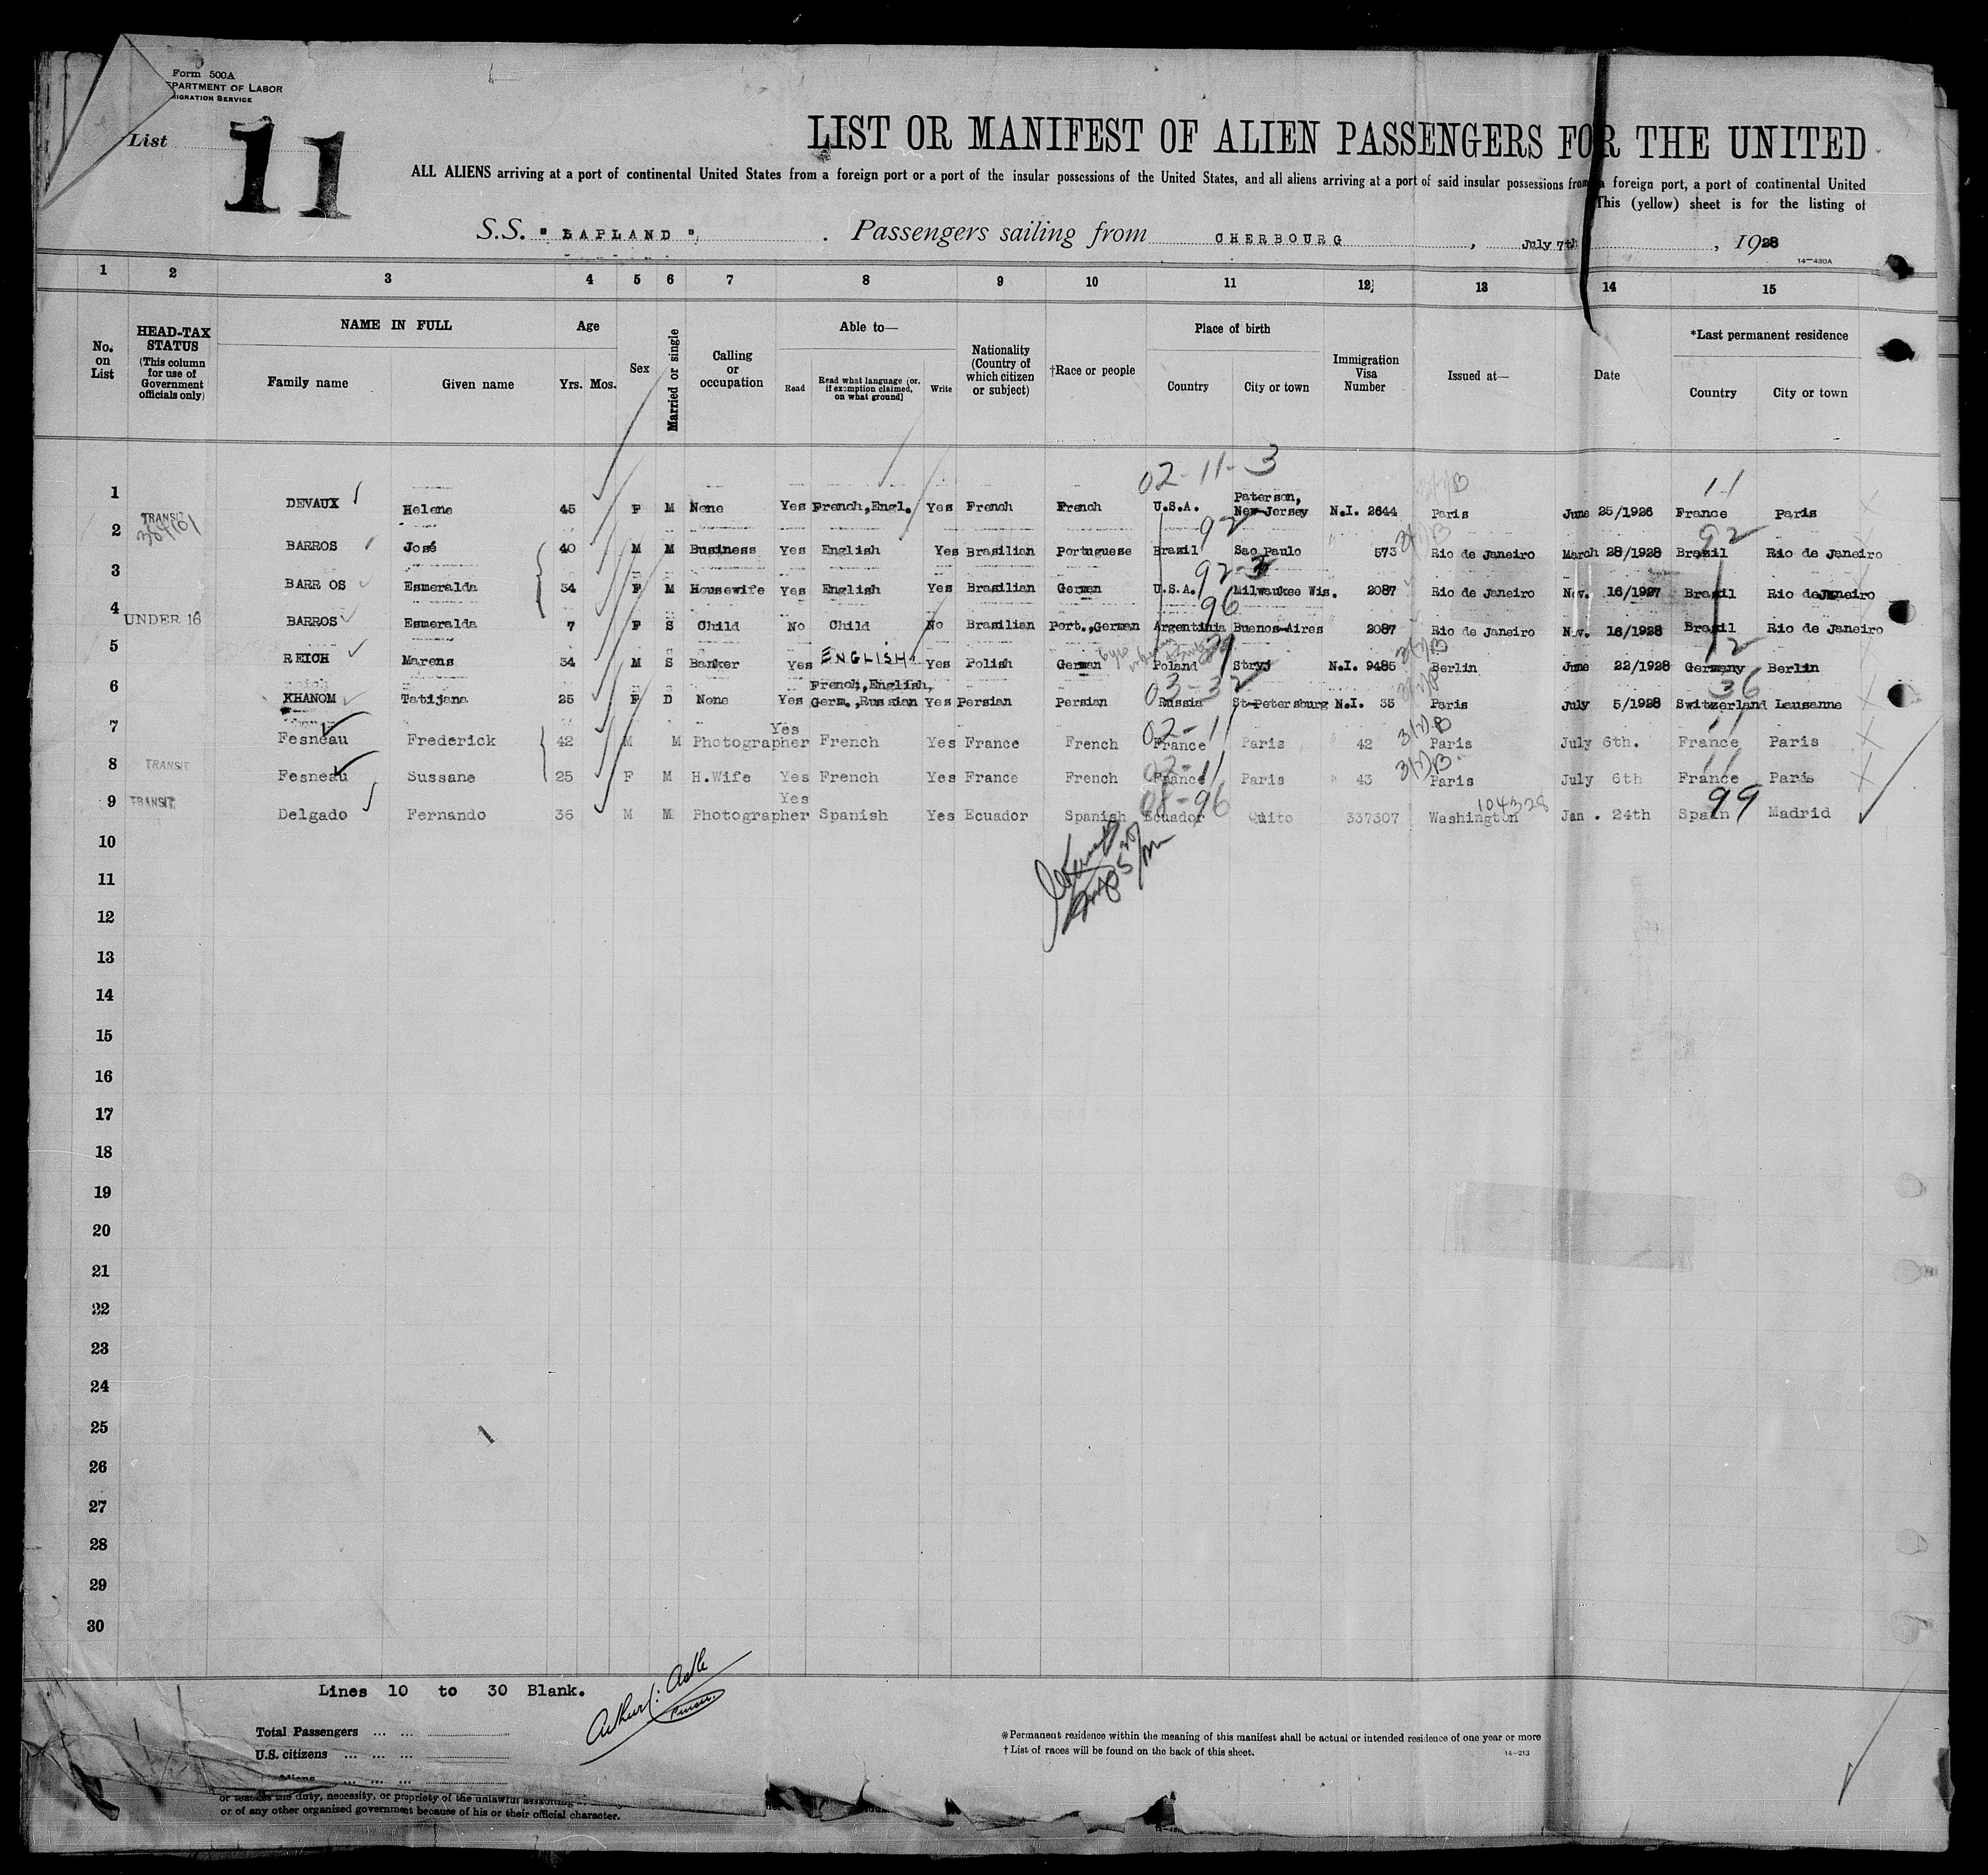 Form 500A
PARTMENT OF LABOR
MIGRATION SERVICE
List 11
LIST OR MANIFEST OF ALIEN PASSENGERS FOR THE UNITED
ALL ALIENS arriving at a port of continental United States from a foreign port or a port of the insular possessions of the United States, and all aliens arriving at a port of said insular possessions from a foreign port, a port of continental United
This (yellow) sheet is for the listing of
S.S. "LAPLAND", Passengers sailing from CHERBOURG, July 7th, 1928
14-430A
1 2 3 4 5 6 7 8 9 10 11 12 13 14 15
No. on List
HEAD-TAX STATUS (This column for use of Government officials only)
NAME IN FULL
Family name Given name
Age
Yrs. Mos.
Sex
Married or single
Calling or occupation
Able to—
Read
Read what language [or, if exemption claimed, on what ground]
Write
Nationality (Country of which citizen or subject)
†Race or people
Place of birth
Country City or town
Immigration Visa Number
Issued at—
Date
*Last permanent residence
Country City or town
02-11-3 11
1 DEVAUX Helene 45 F M None Yes French,Engl. Yes French French U.S.A. Paterson, New-Jersey N.I. 2644 Paris June 25/1926 France Paris
TRANSIT
92 92
2 BARROS José 40 M M Business Yes English Yes Brasilian Portuguese Brazil Sao Paulo 573 Rio de Janeiro March 28/1928 Brazil Rio de Janeiro
92-3
3 BARR OS Esmeralda 34 F M Housewife Yes English Yes Brasilian German U.S.A. Milwaukee Wis. 2087 Rio de Janeiro Nov. 16/1927 Brazil Rio de Janeiro
96
4 UNDER 16 BARROS Esmeralda 7 F S Child No Child No Brasilian Port.,German Argentinia Buenos-Aires 2087 Rio de Janeiro Nov. 16/1928 Brasil Rio de Janeiro
12
5 REICH Marens 34 M S Banker Yes ENGLISH Yes Polish German Poland Stryj N.I. 9485 Berlin June 22/1928 Germany Berlin
03-32 36
6 KHANOM Tatijana 25 F D None Yes French,English, Germ.,Russian Yes Persian Persian Russia St-Petersburg N.I. 35 Paris July 5/1928 Switzerland Lausanne
02-11 11
7 Fesneau Frederick 42 M M Photographer Yes French Yes France French France Paris " 42 Paris July 6th. France Paris
02-11 11
8 TRANSIT Fesneau Sussane 25 F M H.Wife Yes French Yes France French France Paris " 43 Paris July 6th France Paris
08-96 104328 99
9 TRANSIT Delgado Fernando 36 M M Photographer Yes Spanish Yes Ecuador Spanish Ecuador Quito 337307 Washington Jan. 24th Spain Madrid
10
11
12
13
14
15
16
17
18
19
20
21
22
23
24
25
26
27
28
29
30
Lines 10 to 30 Blank.
Total Passengers ... ...
U.S. citizens ... ... ...
*Permanent residence within the meaning of this manifest shall be actual or intended residence of one year or more
†List of races will be found on the back of this sheet. 14-213
or teaches the duty, necessity, or propriety of the unlawful
or of any other organized government because of his or their official character.